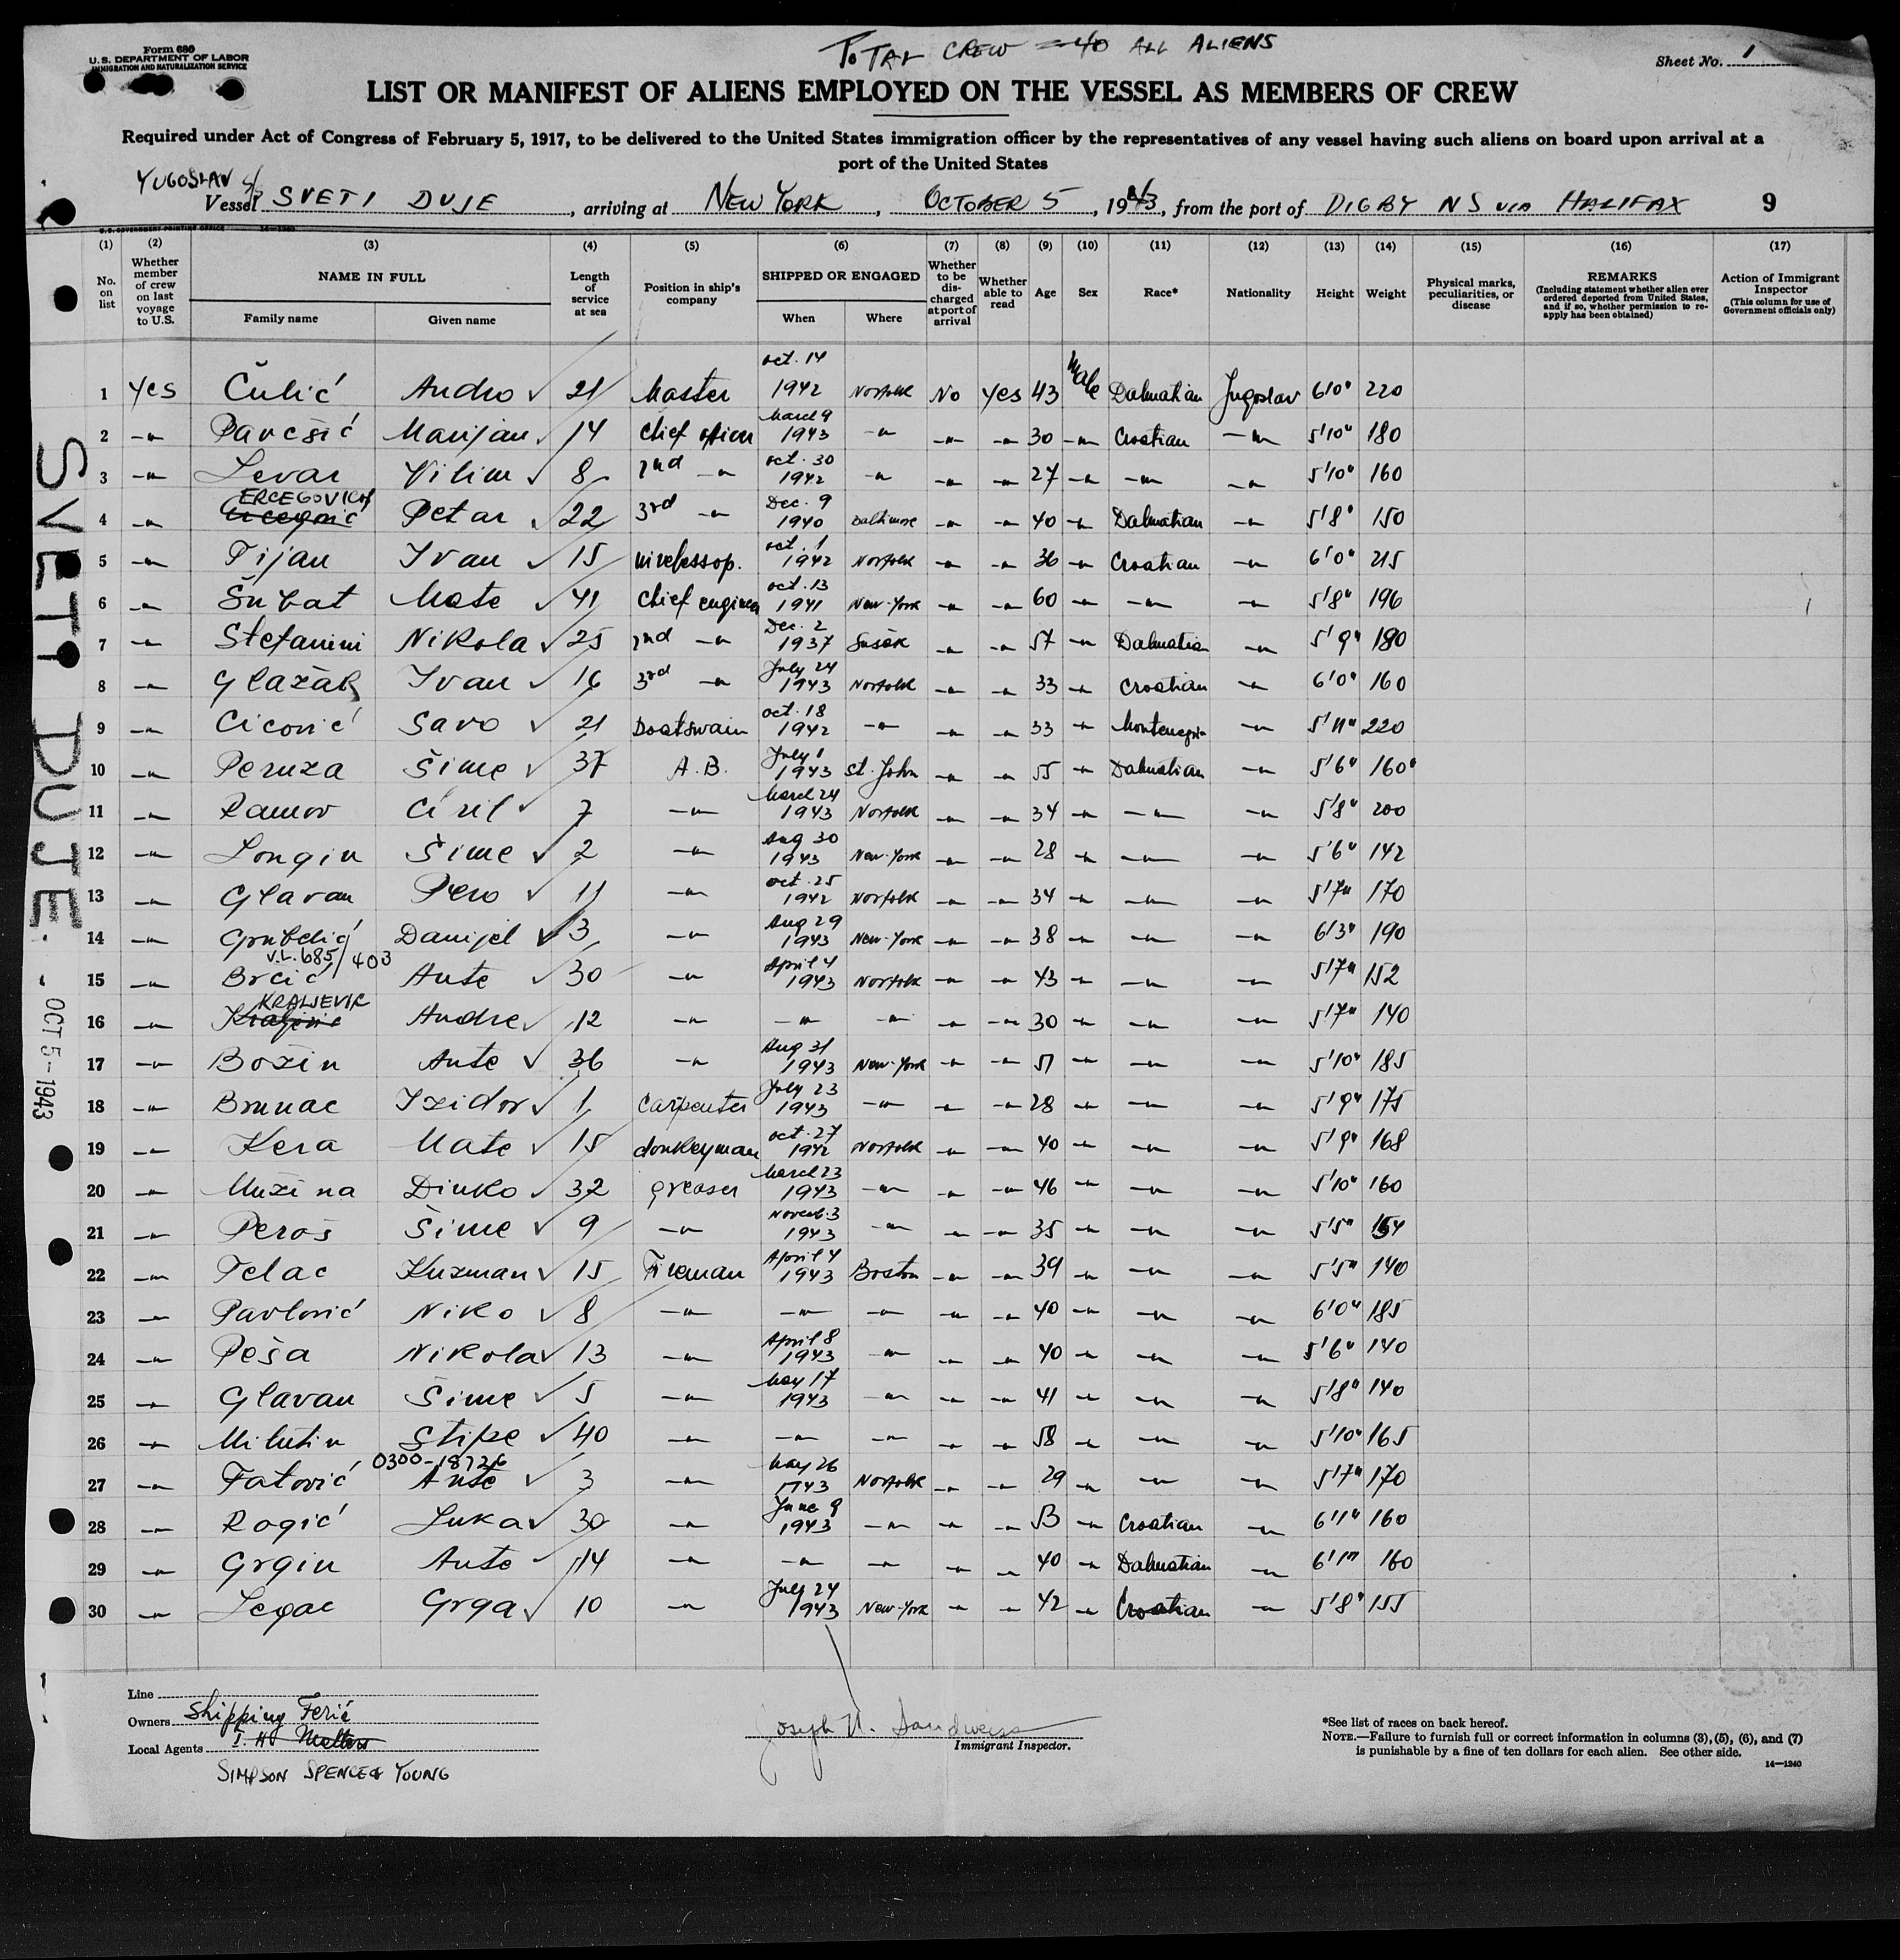 Form 680
U.S. DEPARTMENT OF LABOR
IMMIGRATION AND NATURALIZATION SERVICE
TOTAL CREW = 40 ALL ALIENS
Sheet No. 1
LIST OR MANIFEST OF ALIENS EMPLOYED ON THE VESSEL AS MEMBERS OF CREW
Required under Act of Congress of February 5, 1917, to be delivered to the United States immigration officer by the representatives of any vessel having such aliens on board upon arrival at a
port of the United States
YUGOSLAV S/S
Vessel SVETI DUJE, arriving at NEW YORK, OCTOBER 5, 1943, from the port of DIGBY NS VIA HALIFAX 9
U.S. GOVERNMENT PRINTING OFFICE 14—1240
(1) (2) (3) (4) (5) (6) (7) (8) (9) (10) (11) (12) (13) (14) (15) (16) (17)
No. on list
Whether member of crew on last voyage to U.S.
NAME IN FULL
Family name Given name
Length of service at sea
Position in ship's company
SHIPPED OR ENGAGED
When Where
Whether to be discharged at port of arrival
Whether able to read
Age
Sex
Race*
Nationality
Height
Weight
Physical marks, peculiarities, or disease
REMARKS
(Including statement whether alien ever ordered deported from United States, and if so, whether permission to reapply has been obtained)
Action of Immigrant Inspector
(This column for use of Government officials only)
1 Yes Čulić Andro ✓ 21 Master Oct. 14 1942 Norfolk No Yes 43 Male Dalmatian Jugoslav 6'0" 220
2 —"— Pavešić Marijan ✓ 14 Chief officer March 9 1943 —"— —"— —"— 30 —"— Croatian —"— 5'10" 180
3 —"— Levar Vilim ✓ 8 2nd —"— Oct. 30 1942 —"— —"— —"— 27 —"— —"— —"— 5'10" 160
ERCEGOVICH
4 —"— Petar ✓ 22 3rd —"— Dec. 9 1940 Baltimore —"— —"— 40 —"— Dalmatian —"— 5'8" 150
5 —"— Pijan Ivan ✓ 15 wirelessop. Oct. 1 1942 Norfolk —"— —"— 36 —"— Croatian —"— 6'0" 215
6 —"— Šubat Mate ✓ 41 Chief engineer Oct. 13 1941 New-York —"— —"— 60 —"— —"— —"— 5'8" 196
7 —"— Stefanini Nikola ✓ 25 2nd —"— Dec. 2 1937 Sušak —"— —"— 57 —"— Dalmatian —"— 5'9" 180
8 —"— Glažar Ivan ✓ 16 3rd —"— July 24 1943 Norfolk —"— —"— 33 —"— Croatian —"— 6'0" 160
9 —"— Cicović Savo ✓ 21 Boatswain Oct. 18 1942 —"— —"— —"— 33 —"— Montenegrin —"— 5'11" 220
10 —"— Peruza Šime ✓ 37 A.B. July 1 1943 St. John —"— —"— 55 —"— Dalmatian —"— 5'6" 160
11 —"— Ramov Ciril ✓ 7 —"— March 24 1943 Norfolk —"— —"— 34 —"— —"— —"— 5'8" 200
12 —"— Longin Šime ✓ 2 —"— Aug 30 1943 New-York —"— —"— 28 —"— —"— —"— 5'6" 142
13 —"— Glavan Pero ✓ 11 —"— Oct. 25 1942 Norfolk —"— —"— 34 —"— —"— —"— 5'7" 170
14 —"— Grubelić Danijel ✓ 3 —"— Aug 29 1943 New-York —"— —"— 38 —"— —"— —"— 6'3" 190
V.L. 685/403
15 —"— Brčić Ante ✓ 30 —"— April 4 1943 Norfolk —"— —"— 43 —"— —"— —"— 5'7" 152
KRALJEVIC
16 —"— Andre ✓ 12 —"— —"— —"— —"— —"— 30 —"— —"— —"— 5'7" 140
17 —"— Božin Ante ✓ 36 —"— Aug 31 1943 New-York —"— —"— 51 —"— —"— —"— 5'10" 185
18 —"— Brunac Izidor ✓ 1 Carpenter July 23 1943 —"— —"— —"— 28 —"— —"— —"— 5'9" 175
19 —"— Kera Mate ✓ 15 donkeyman Oct. 27 1942 Norfolk —"— —"— 40 —"— —"— —"— 5'9" 168
20 —"— Mužina Dinko ✓ 32 greaser March 23 1943 —"— —"— —"— 46 —"— —"— —"— 5'10" 160
21 —"— Peroš Šime ✓ 9 —"— Novemb. 3 1943 —"— —"— —"— 35 —"— —"— —"— 5'5" 154
22 —"— Pelac Kuzman ✓ 15 Fireman April 4 1943 Boston —"— —"— 39 —"— —"— —"— 5'5" 140
23 —"— Pavlović Niko ✓ 8 —"— —"— —"— —"— —"— 40 —"— —"— —"— 6'0" 185
24 —"— Peša Nikola ✓ 13 —"— April 8 1943 —"— —"— —"— 40 —"— —"— —"— 5'6" 140
25 —"— Glavan Šime ✓ 5 —"— May 17 1943 —"— —"— —"— 41 —"— —"— —"— 5'8" 140
26 —"— Milutin Stipe ✓ 40 —"— —"— —"— —"— —"— 58 —"— —"— —"— 5'10" 165
0300-18726
27 —"— Fatović Ante ✓ 3 —"— May 26 1943 Norfolk —"— —"— 29 —"— —"— —"— 5'7" 170
28 —"— Rogić Luka ✓ 30 —"— June 9 1943 —"— —"— —"— 53 —"— Croatian —"— 6'1" 160
29 —"— Grgin Ante ✓ 14 —"— —"— —"— —"— —"— 40 —"— Dalmatian —"— 6'1" 160
30 —"— Legac Grga ✓ 10 —"— July 24 1943 New-York —"— —"— 42 —"— Croatian —"— 5'8" 155
SVETI DUJE. - OCT 5 - 1943
Line
Owners Shipping Ferić
Local Agents
SIMPSON SPENCE & YOUNG
Joseph N. Sandweiss
Immigrant Inspector.
*See list of races on back hereof.
NOTE.—Failure to furnish full or correct information in columns (3), (5), (6), and (7)
is punishable by a fine of ten dollars for each alien. See other side.
14—1240